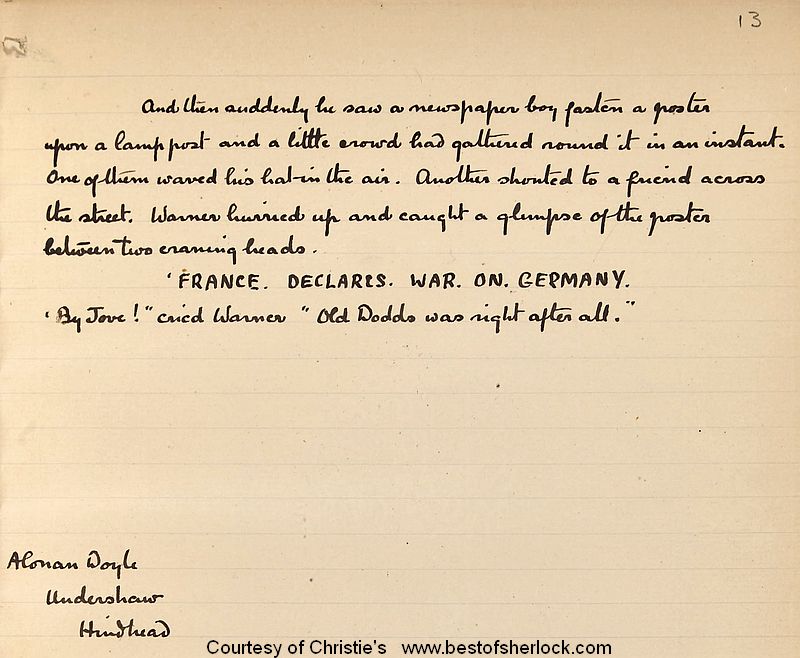 13
And then suddenly he saw a newspaper boy fasten a poster
upon a lamp post and a little crowd had gathered round it in an instant.
One of them waved his hat in the air. Another shouted to a friend across
the street. Warner hurried up and caught a glimpse of the poster
between two craning heads.
'FRANCE. DECLARES. WAR. ON. GERMANY.
'By Jove!" cried Warner "Old Dodds was right after all."
A Conan Doyle
Undershaw
Hindhead
Courtesy of Christie's www.bestofsherlock.com